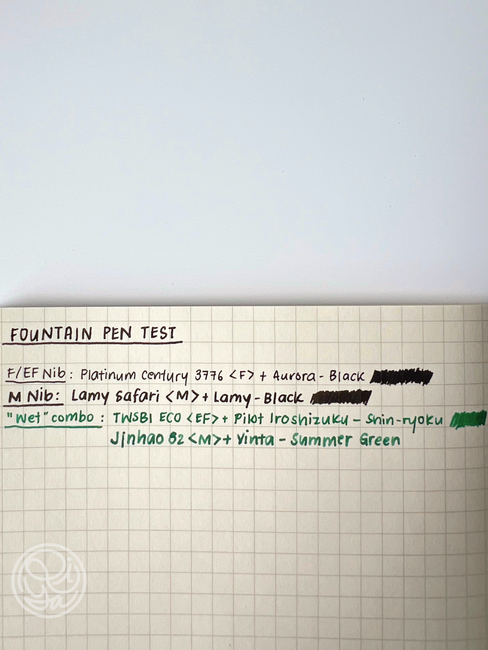 FOUNTAIN PEN TEST
F/EF Nib: Platinum Century 3776 <F> + Aurora - Black
M Nib: Lamy Safari <M> + Lamy - Black
"Wet" combo: TWSBI ECO <EF> + Pilot Iroshizuku - Shin-ryoku
Jinhao 82 <M> + Vinta - Summer Green